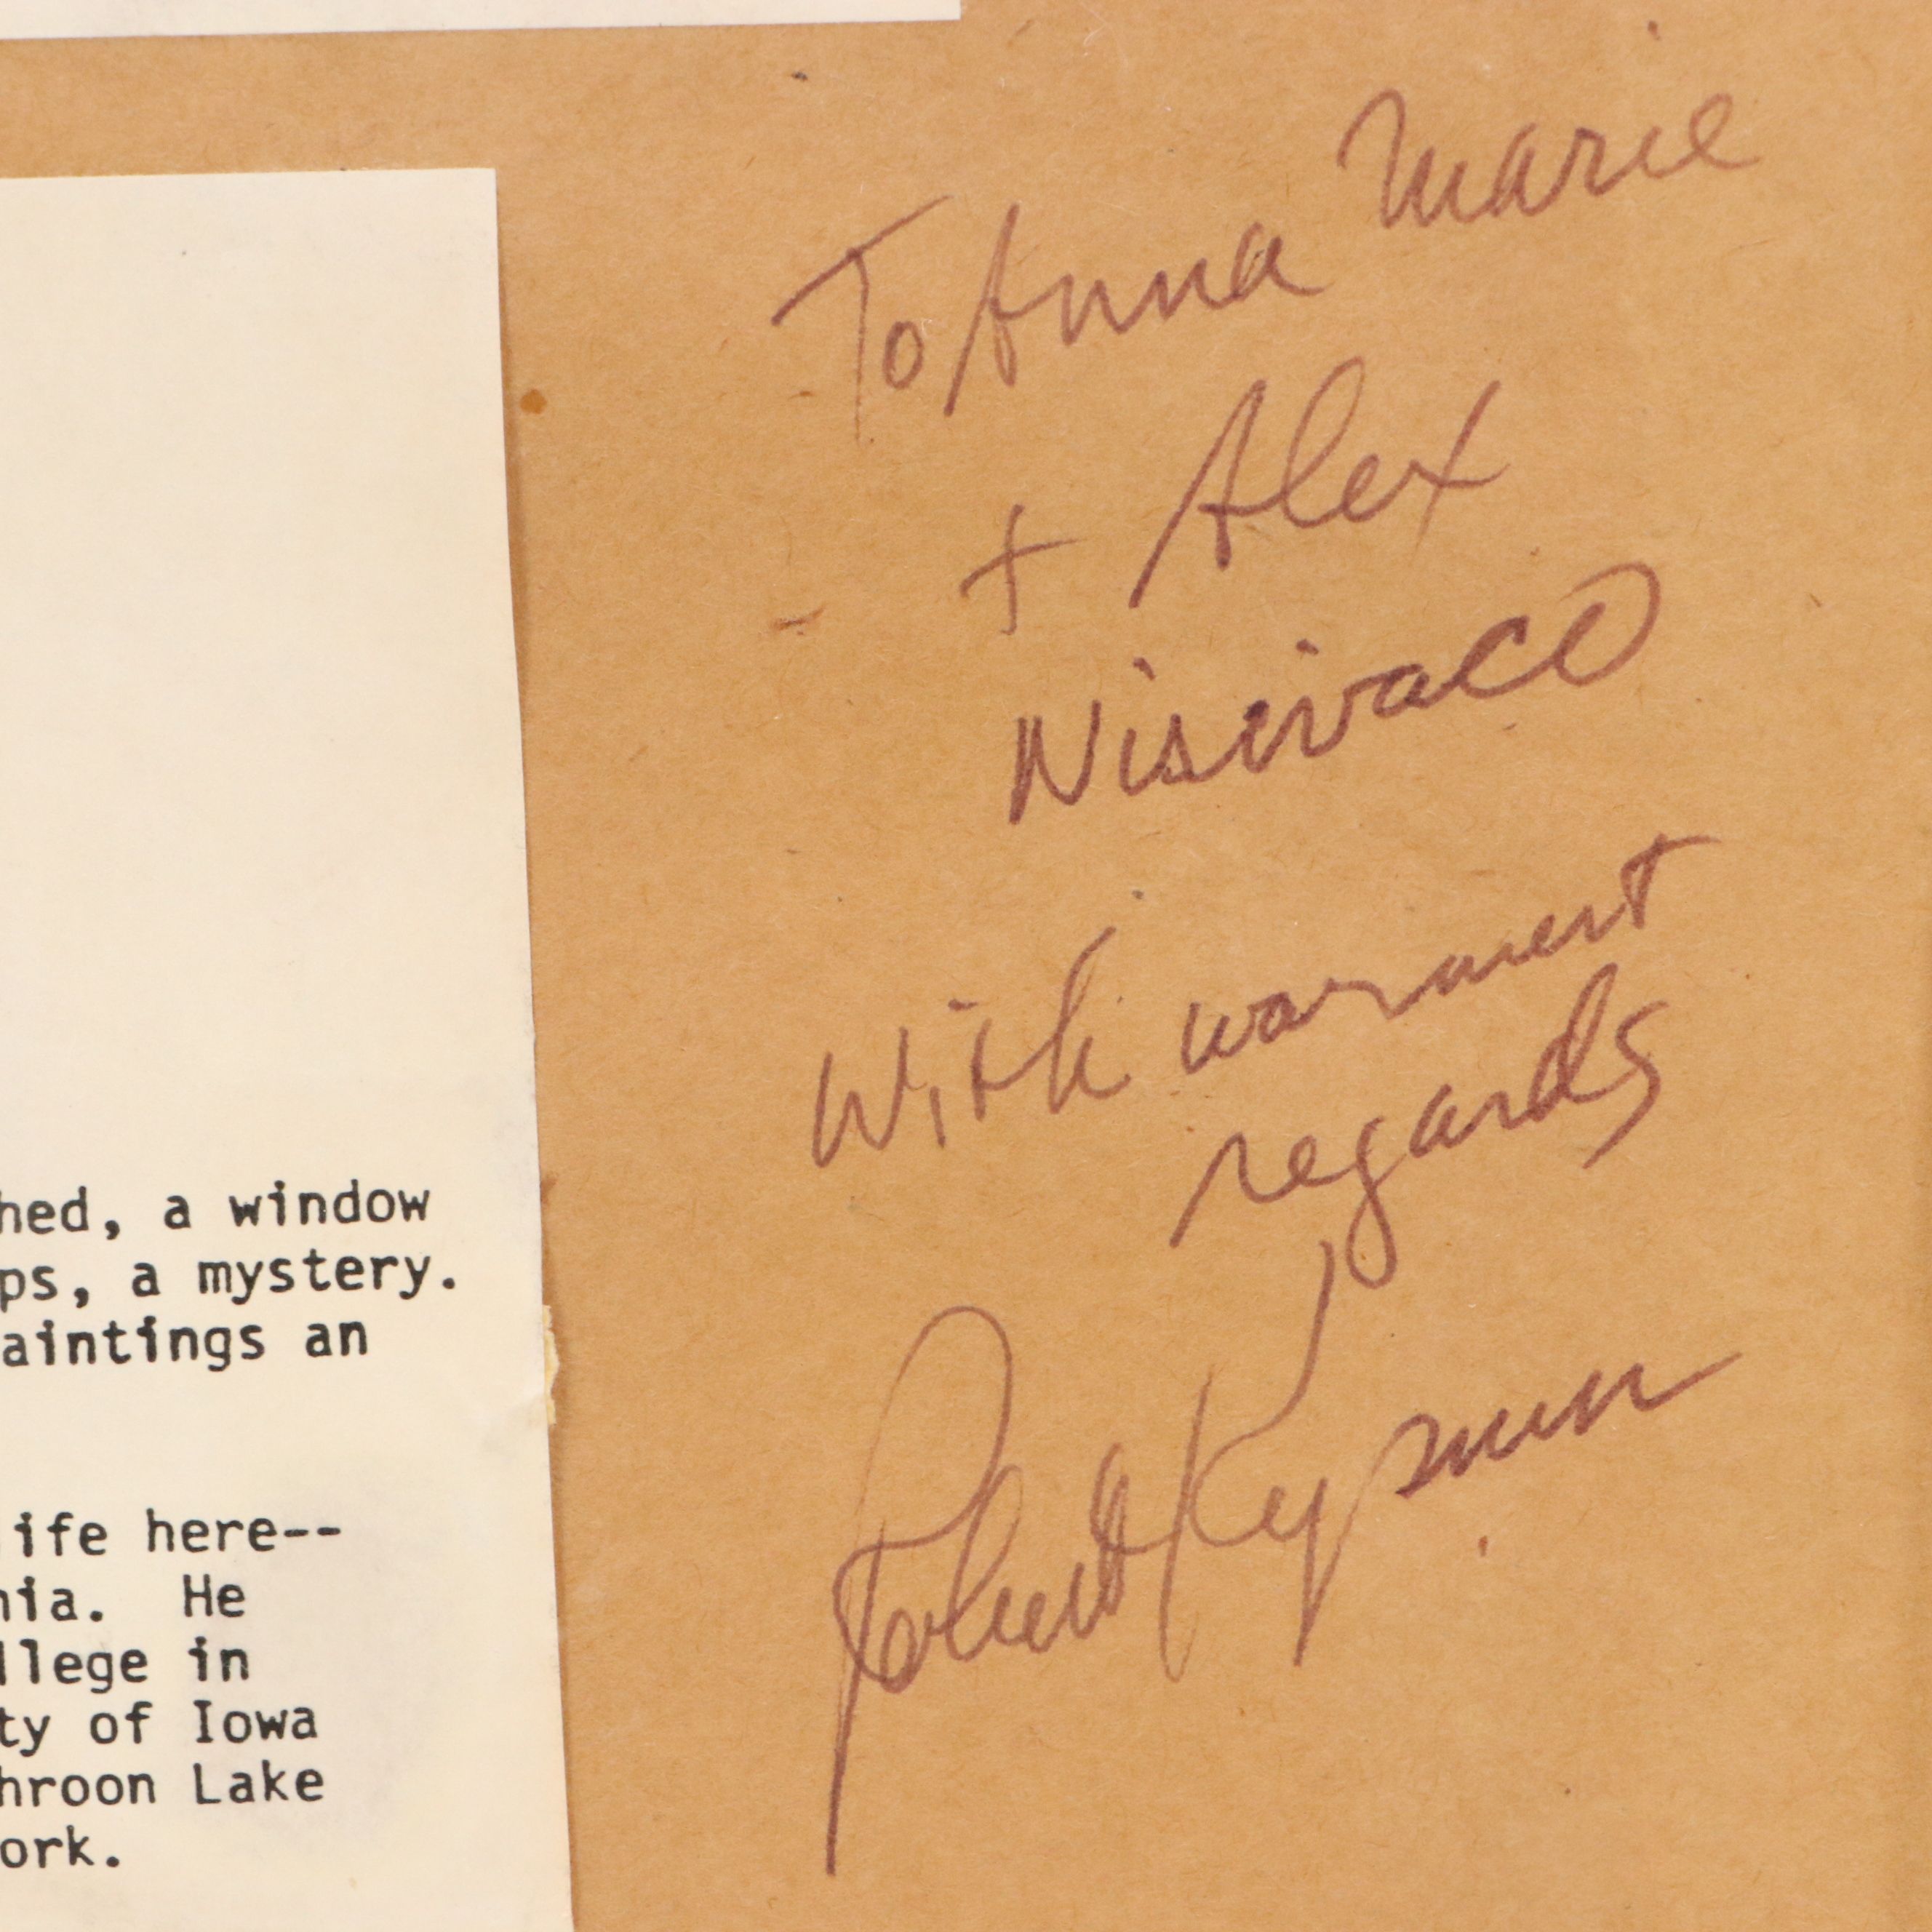 hed, a window
ps, a mystery.
aintings an
ife here--
nia. He
llege in
ty of Iowa
hroon Lake
ork.
To Anna Marie
+ Alex
Nisivaco
With warmest
regards
Robert Kypmun